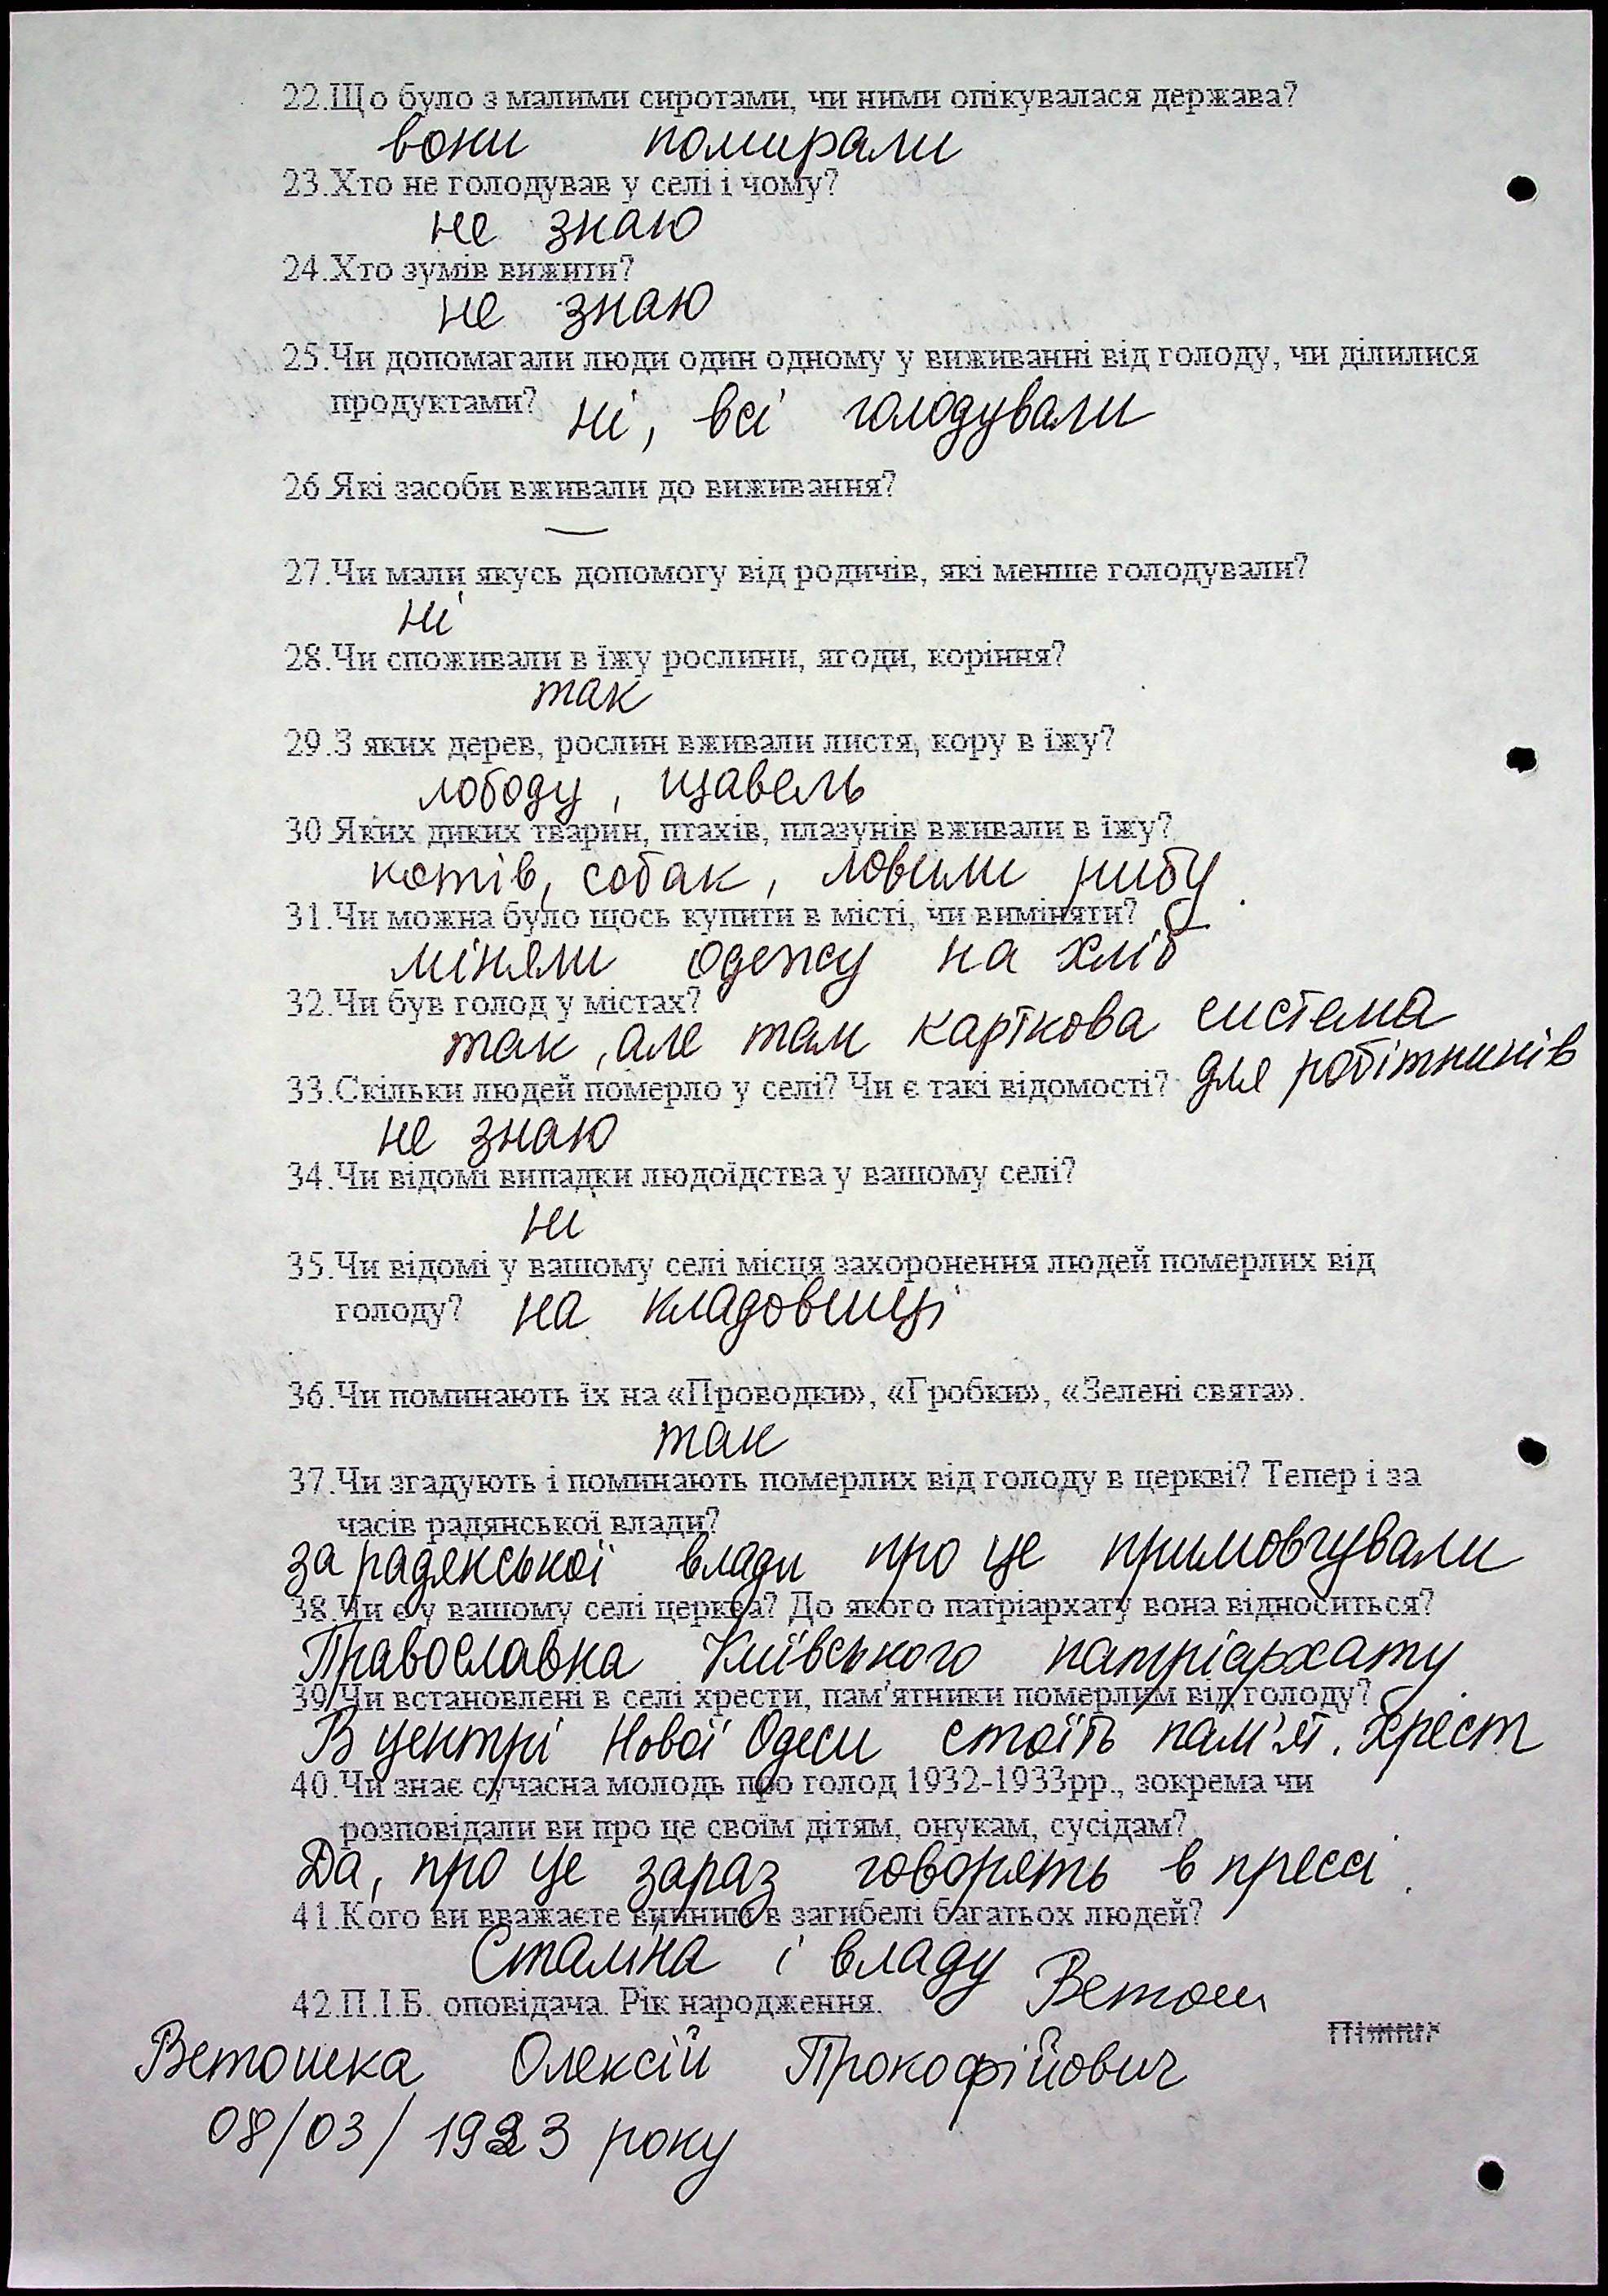 22.Що було з малими сиротами, чи ними опікувалася держава?
вони помирали
23.Хто не голодував у селі і чому?
не знаю
24.Хто зумів вижити?
не знаю
25.Чи допомагали люди один одному у виживанні від голоду, чи ділилися
продуктами? ні, всі голодували
26.Які засоби вживали до виживання?
—
27.Чи мали якусь допомогу від родичів, які менше голодували?
ні
28.Чи споживали в їжу рослини, ягоди, коріння?
так
29.З яких дерев, рослин вживали листя, кору в їжу?
лободу, щавель
30.Яких диких тварин, птахів, плазунів вживали в їжу?
котів, собак, ловили рибу.
31.Чи можна було щось купити в місті, чи виміняти?
міняли одежу на хліб
32.Чи був голод у містах?
так, але там карткова система
для робітників
33.Скільки людей померло у селі? Чи є такі відомості?
не знаю
34.Чи відомі випадки людоїдства у вашому селі?
ні
35.Чи відомі у вашому селі місця захоронення людей померлих від
голоду? на кладовищі
36.Чи поминають їх на «Проводки», «Гробки», «Зелені свята».
так
37.Чи згадують і поминають померлих від голоду в церкві? Тепер і за
часів радянської влади?
за радянської влади про це примовчували
38.Чи є у вашому селі церква? До якого патріархату вона відноситься?
Православна Київського патріархату
39.Чи встановлені в селі хрести, пам'ятники померлим від голоду?
В центрі Нової Одеси стоїть пам'ят. хрест
40.Чи знає сучасна молодь про голод 1932-1933рр., зокрема чи
розповідали ви про це своїм дітям, онукам, сусідам?
Да, про це зараз говорять в прессі.
41.Кого ви вважаєте винним в загибелі багатьох людей?
Сталіна і владу
42.П.І.Б. оповідача. Рік народження. Ветош
Ветошка Олексій Прокофійович
08/03/1923 року